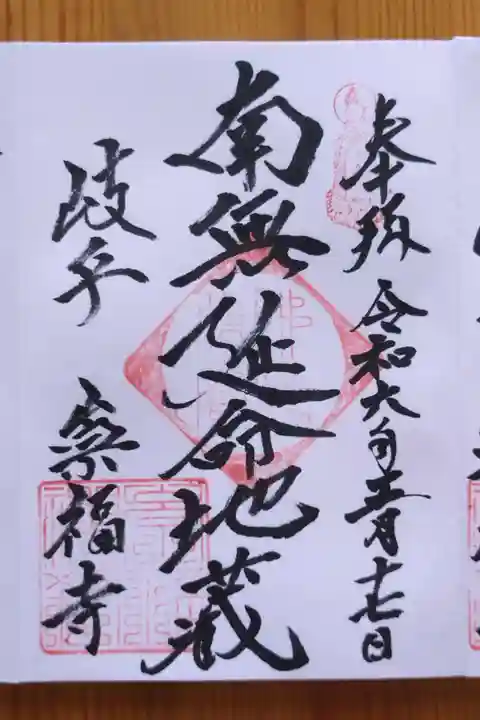 奉拝 令和六年 月十七日
南無延命地蔵
岐阜 崇福寺